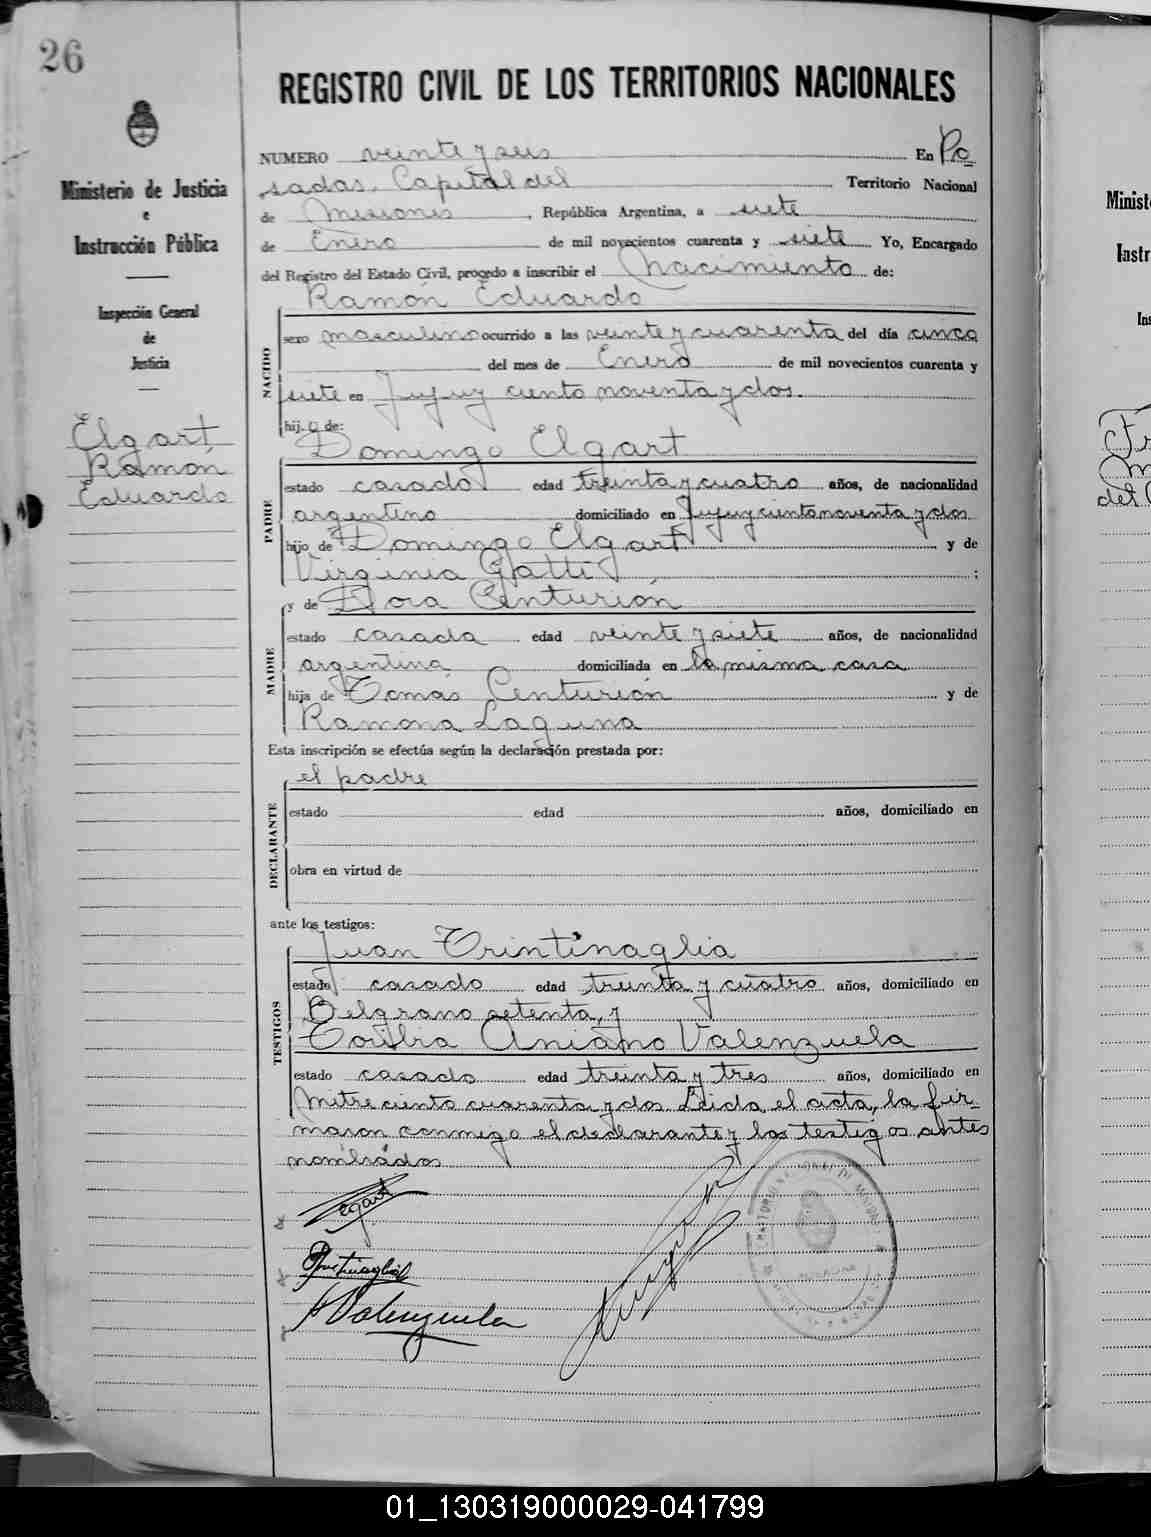 26
REGISTRO CIVIL DE LOS TERRITORIOS NACIONALES
Ministerio de Justicia
e
Instrucción Pública
Inspección General
de
Justicia
Elgart
Ramón
Eduardo
NUMERO veinte y seis En Po
sadas, Capital del Territorio Nacional
de Misiones, República Argentina, a siete
de Enero de mil novecientos cuarenta y siete Yo, Encargado
del Registro del Estado Civil, procedo a inscribir el Nacimiento de:
Ramón Eduardo
NACIDO
sexo masculino ocurrido a las veinte y cuarenta del día cinco
del mes de Enero de mil novecientos cuarenta y
siete en Jujuy ciento noventa y dos.
hij o de:
Domingo Elgart
PADRE
estado casado edad treinta y cuatro años, de nacionalidad
argentino domiciliado en Jujuy ciento noventa y dos
hijo de Domingo Elgart y de
Virginia Gatti ;
y de Flora Centurión
MADRE
estado casada edad veinte y siete años, de nacionalidad
argentina domiciliada en la misma casa
hija de Tomás Centurión y de
Ramona Laguna
Esta inscripción se efectúa según la declaración prestada por:
el padre
DECLARANTE
estado edad años, domiciliado en
obra en virtud de
ante los testigos:
Juan Trintinaglia
TESTIGOS
estado casado edad treinta y cuatro años, domiciliado en
Belgrano setenta, y
Toribio Aniano Valenzuela
estado casado edad treinta y tres años, domiciliado en
Mitre ciento cuarenta y dos. Leida el acta, la fir-
maron conmigo el declarante y los testigos antes
nombrados
Elgart
Trintinaglia
Valenzuela
Minist
Instr
Ins
Fr
M
del
01_130319000029-041799